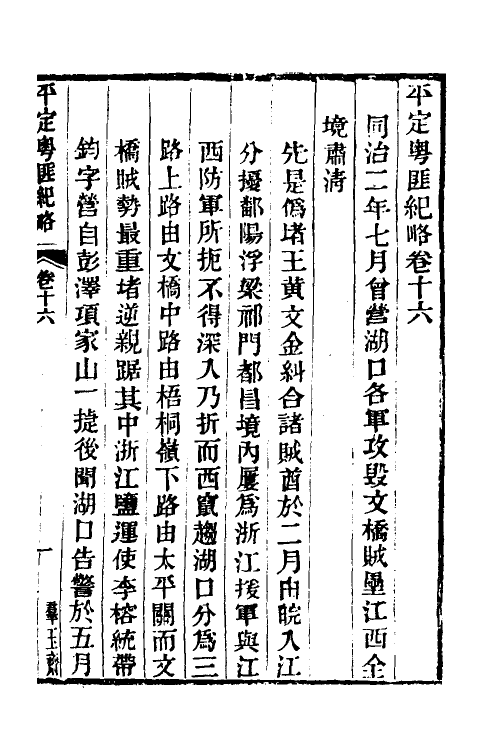 平定粵匪紀略卷十六
同治二年七月曾營湖口各軍攻毀文橋賊壘江西全
境肅淸
先是僞堵王黃文金糾合諸賊酋於二月由皖入江
分擾鄱陽浮梁祁門都昌境內屢爲浙江援軍與江
西防軍所扼不得深入乃折而西竄趨湖口分爲三
路上路由文橋中路由梧桐嶺下路由太平關而文
橋賊勢最重堵逆親踞其中浙江鹽運使李榕統帶
鈞字營自彭澤項家山一捷後聞湖口告警於五月
平定粵匪紀略
卷十六
一
羣玉齋